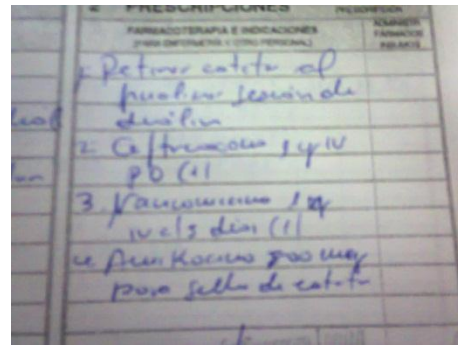 2 PRESCRIPCIONES
FARMACOTERAPIA E INDICACIONES
(PARA ENFERMERÍA Y OTRO PERSONAL)
ADMINISTR.
FÁRMACOS
INSUMOS
1. Retirar cateter al
finalizar sesión de
diálisis
2. Ceftriaxona 1 g IV
PO (1)
3. Vancomicina 1 g
IV c/5 días (1)
4. Amikacina 500 mg
para sello de cateter